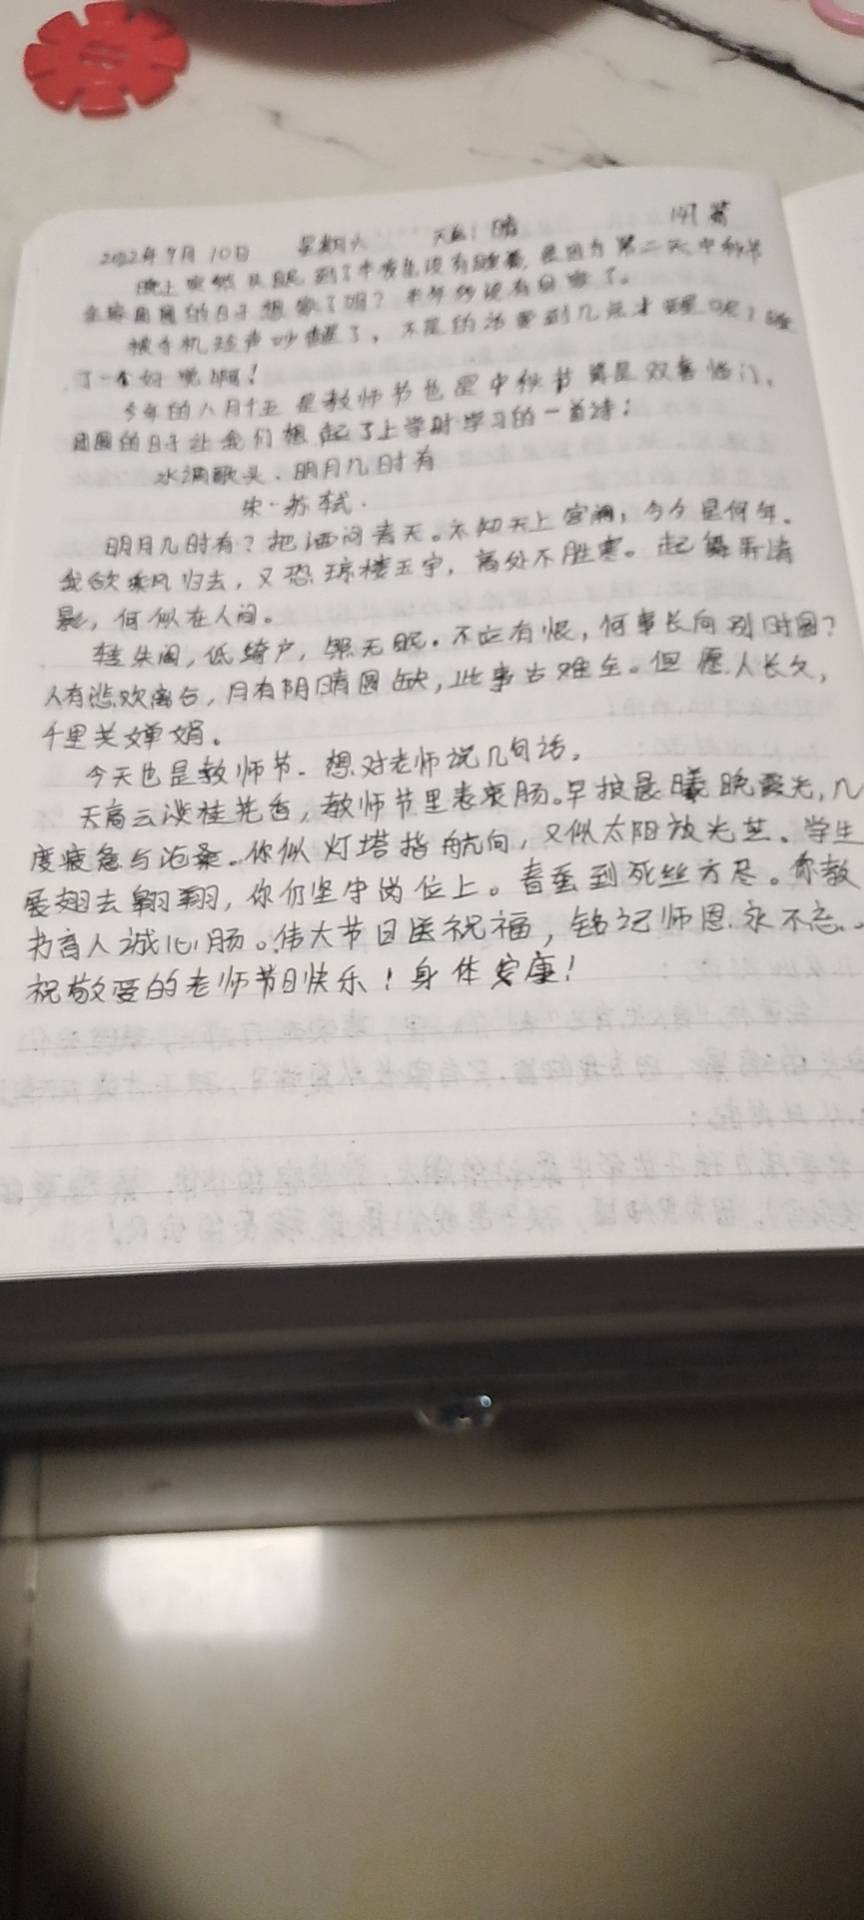 2022年9月10日 星期六 天气:晴
晚上突然失眠到了半夜也没有睡着,是因为第二天中秋节
全家团圆的日子想家了吗?半年多没有回家了。
被手机铃声吵醒了,不是的话要到几点才醒呢?睡
了一个好觉啊!
今年的八月十五是教师节也是中秋节算是双喜临门,
团圆的日子让我们想起了上学时学习的一首诗:
水调歌头.明月几时有
宋·苏轼.
明月几时有?把酒问青天。不知天上宫阙,今夕是何年。
我欲乘风归去,又恐琼楼玉宇,高处不胜寒。起舞弄清
影,何似在人间。
转朱阁,低绮户,照无眠。不应有恨,何事长向别时圆?
人有悲欢离合,月有阴晴圆缺,此事古难全。但愿人长久,
千里共婵娟。
今天也是教师节.想对老师说几句话,
天高云淡桂花香,教师节里表衷肠。早披晨曦晚霞光,几
度疲惫与沧桑。你似灯塔指航向,又似太阳放光芒、学生
展翅去翱翔,你仍坚守岗位上。春蚕到死丝方尽。你教
书育人诚心肠。伟大节日送祝福,铭记师恩.永不忘。
祝敬爱的老师节日快乐!身体安康!